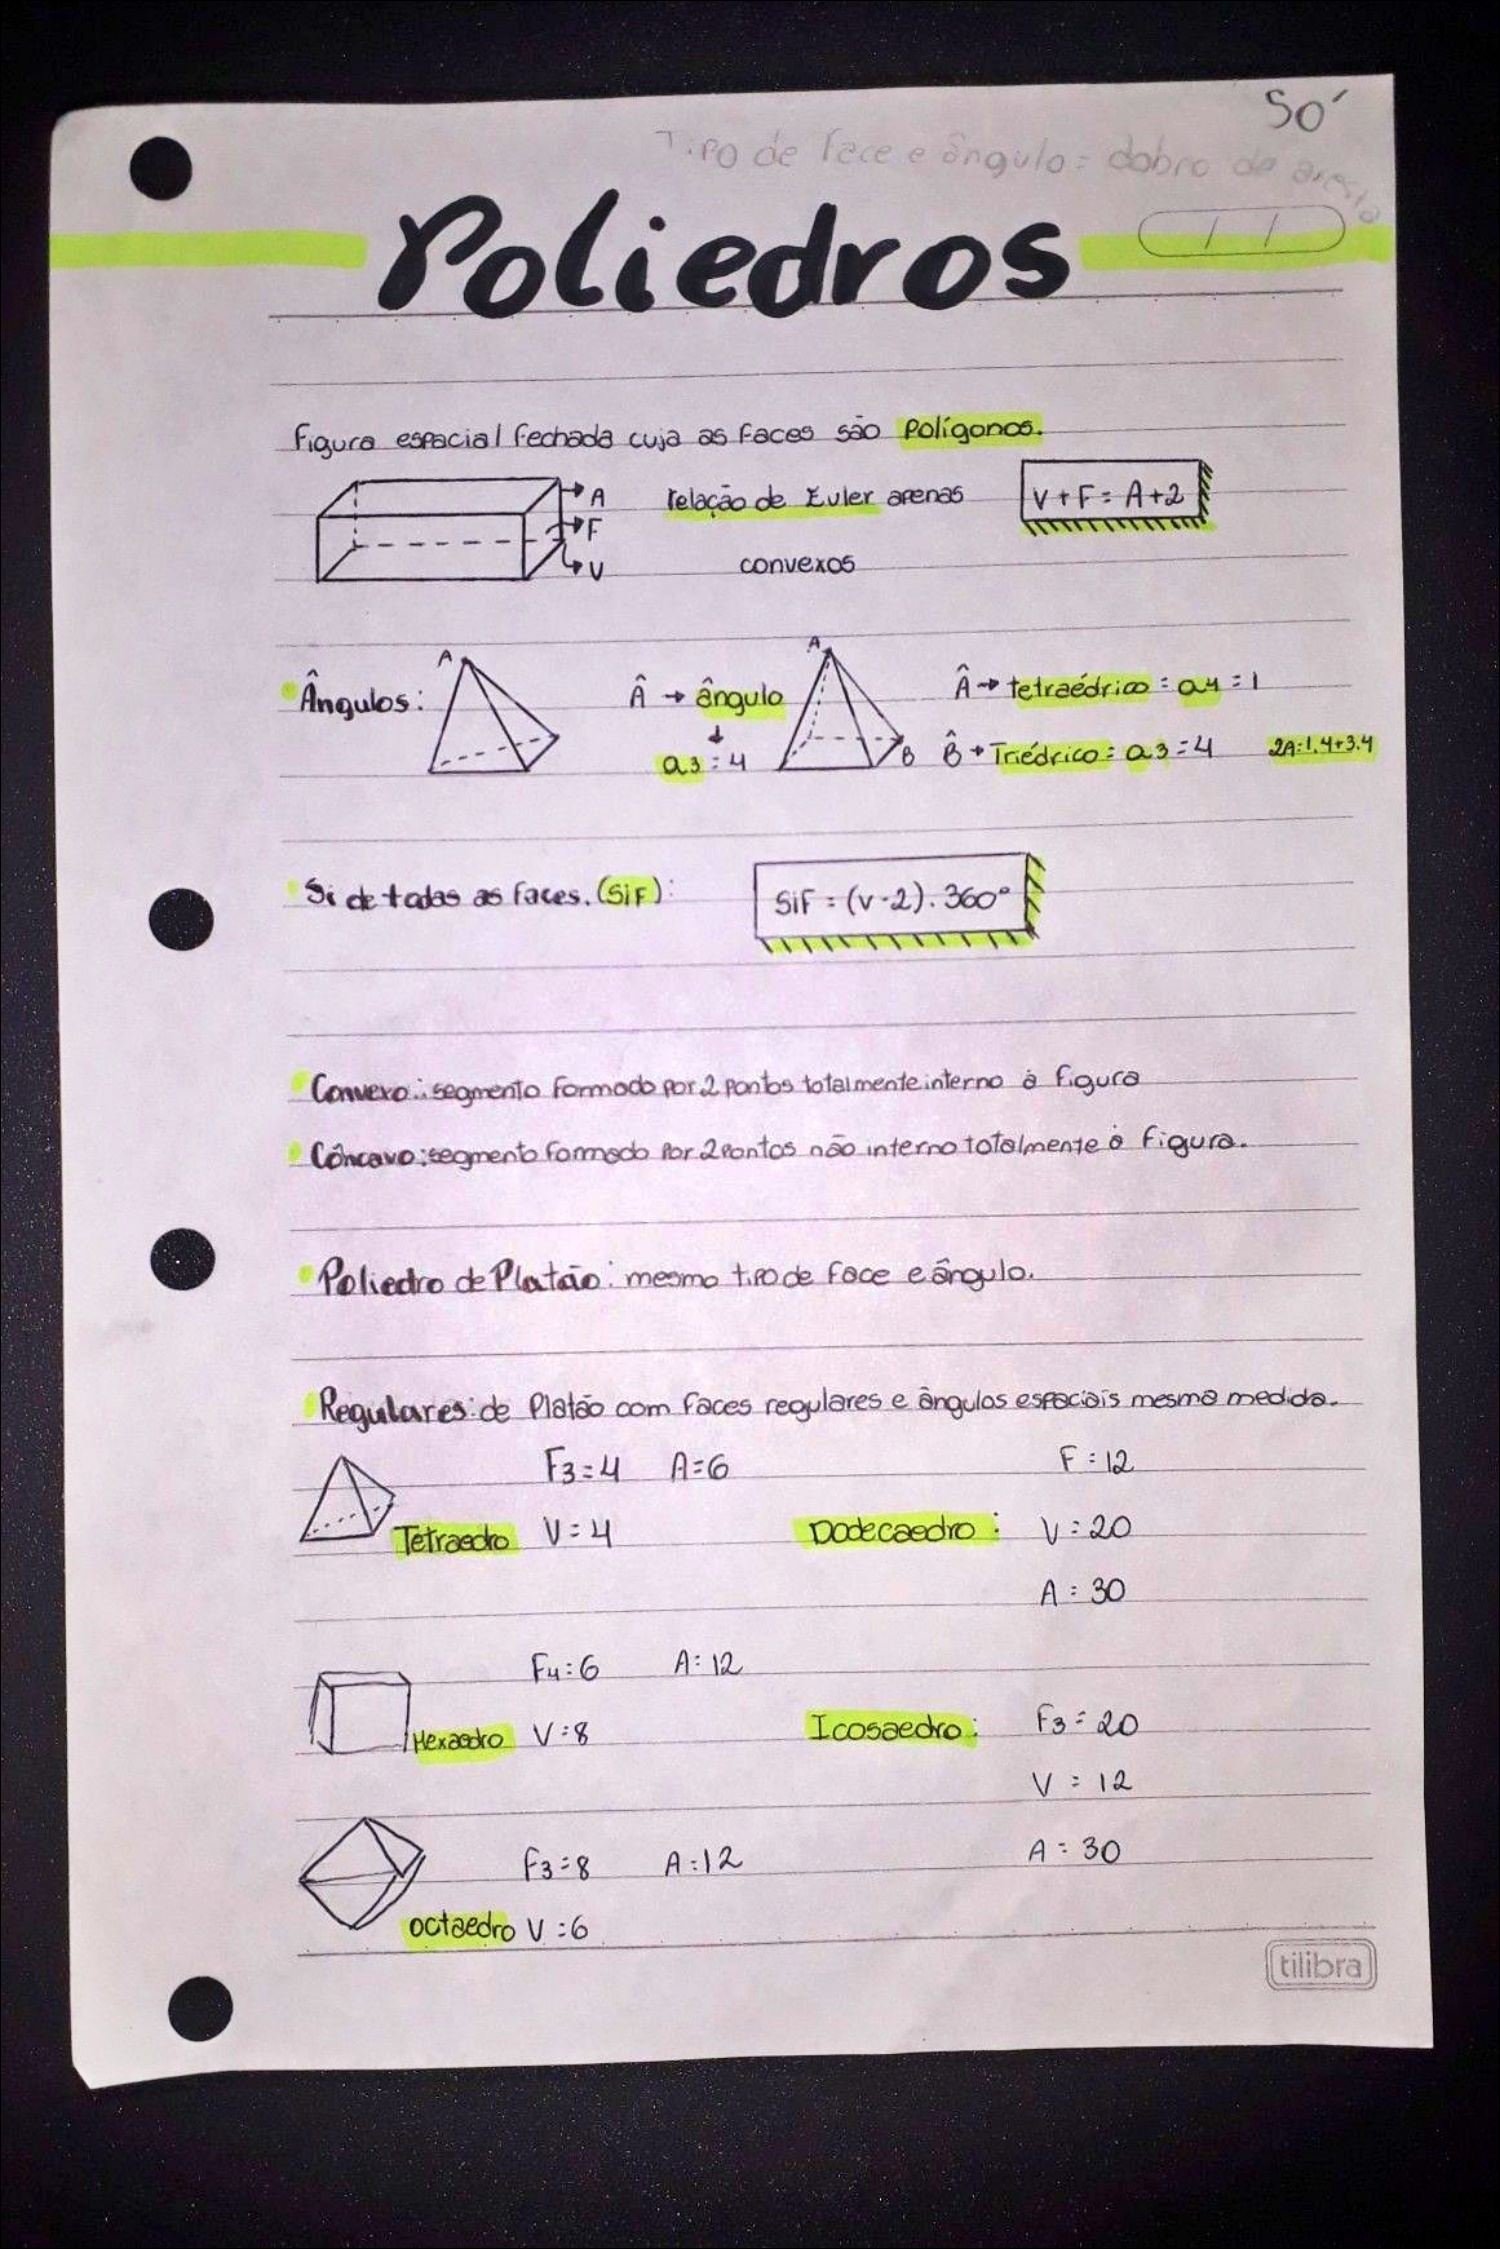 50'
Tipo de face e ângulo = dobro da aresta
Poliedros
/ /
Figura espacial fechada cuja as faces são Polígonos.
A
F
V
relação de Euler apenas
convexos
V + F = A + 2
Ângulos:
A
Â → ângulo
↓
a3 = 4
A
B
Â → tetraédrico = a4 = 1
B̂ → Triédrico = a3 = 4
2A = 1.4 + 3.4
Si de todas as faces. (SiF):
SiF = (v - 2) . 360°
Convexo: segmento formado por 2 pontos totalmente interno à figura
Côncavo: segmento formado por 2 pontos não interno totalmente à figura.
Poliedro de Platão: mesmo tipo de face e ângulo.
Regulares: de Platão com faces regulares e ângulos espaciais mesma medida.
F3 = 4 A = 6
Tetraedro V = 4
F = 12
Dodecaedro: V = 20
A = 30
F4 = 6 A = 12
Hexaedro V = 8
Icosaedro: F3 = 20
V = 12
A = 30
F3 = 8 A = 12
octaedro V = 6
tilibra